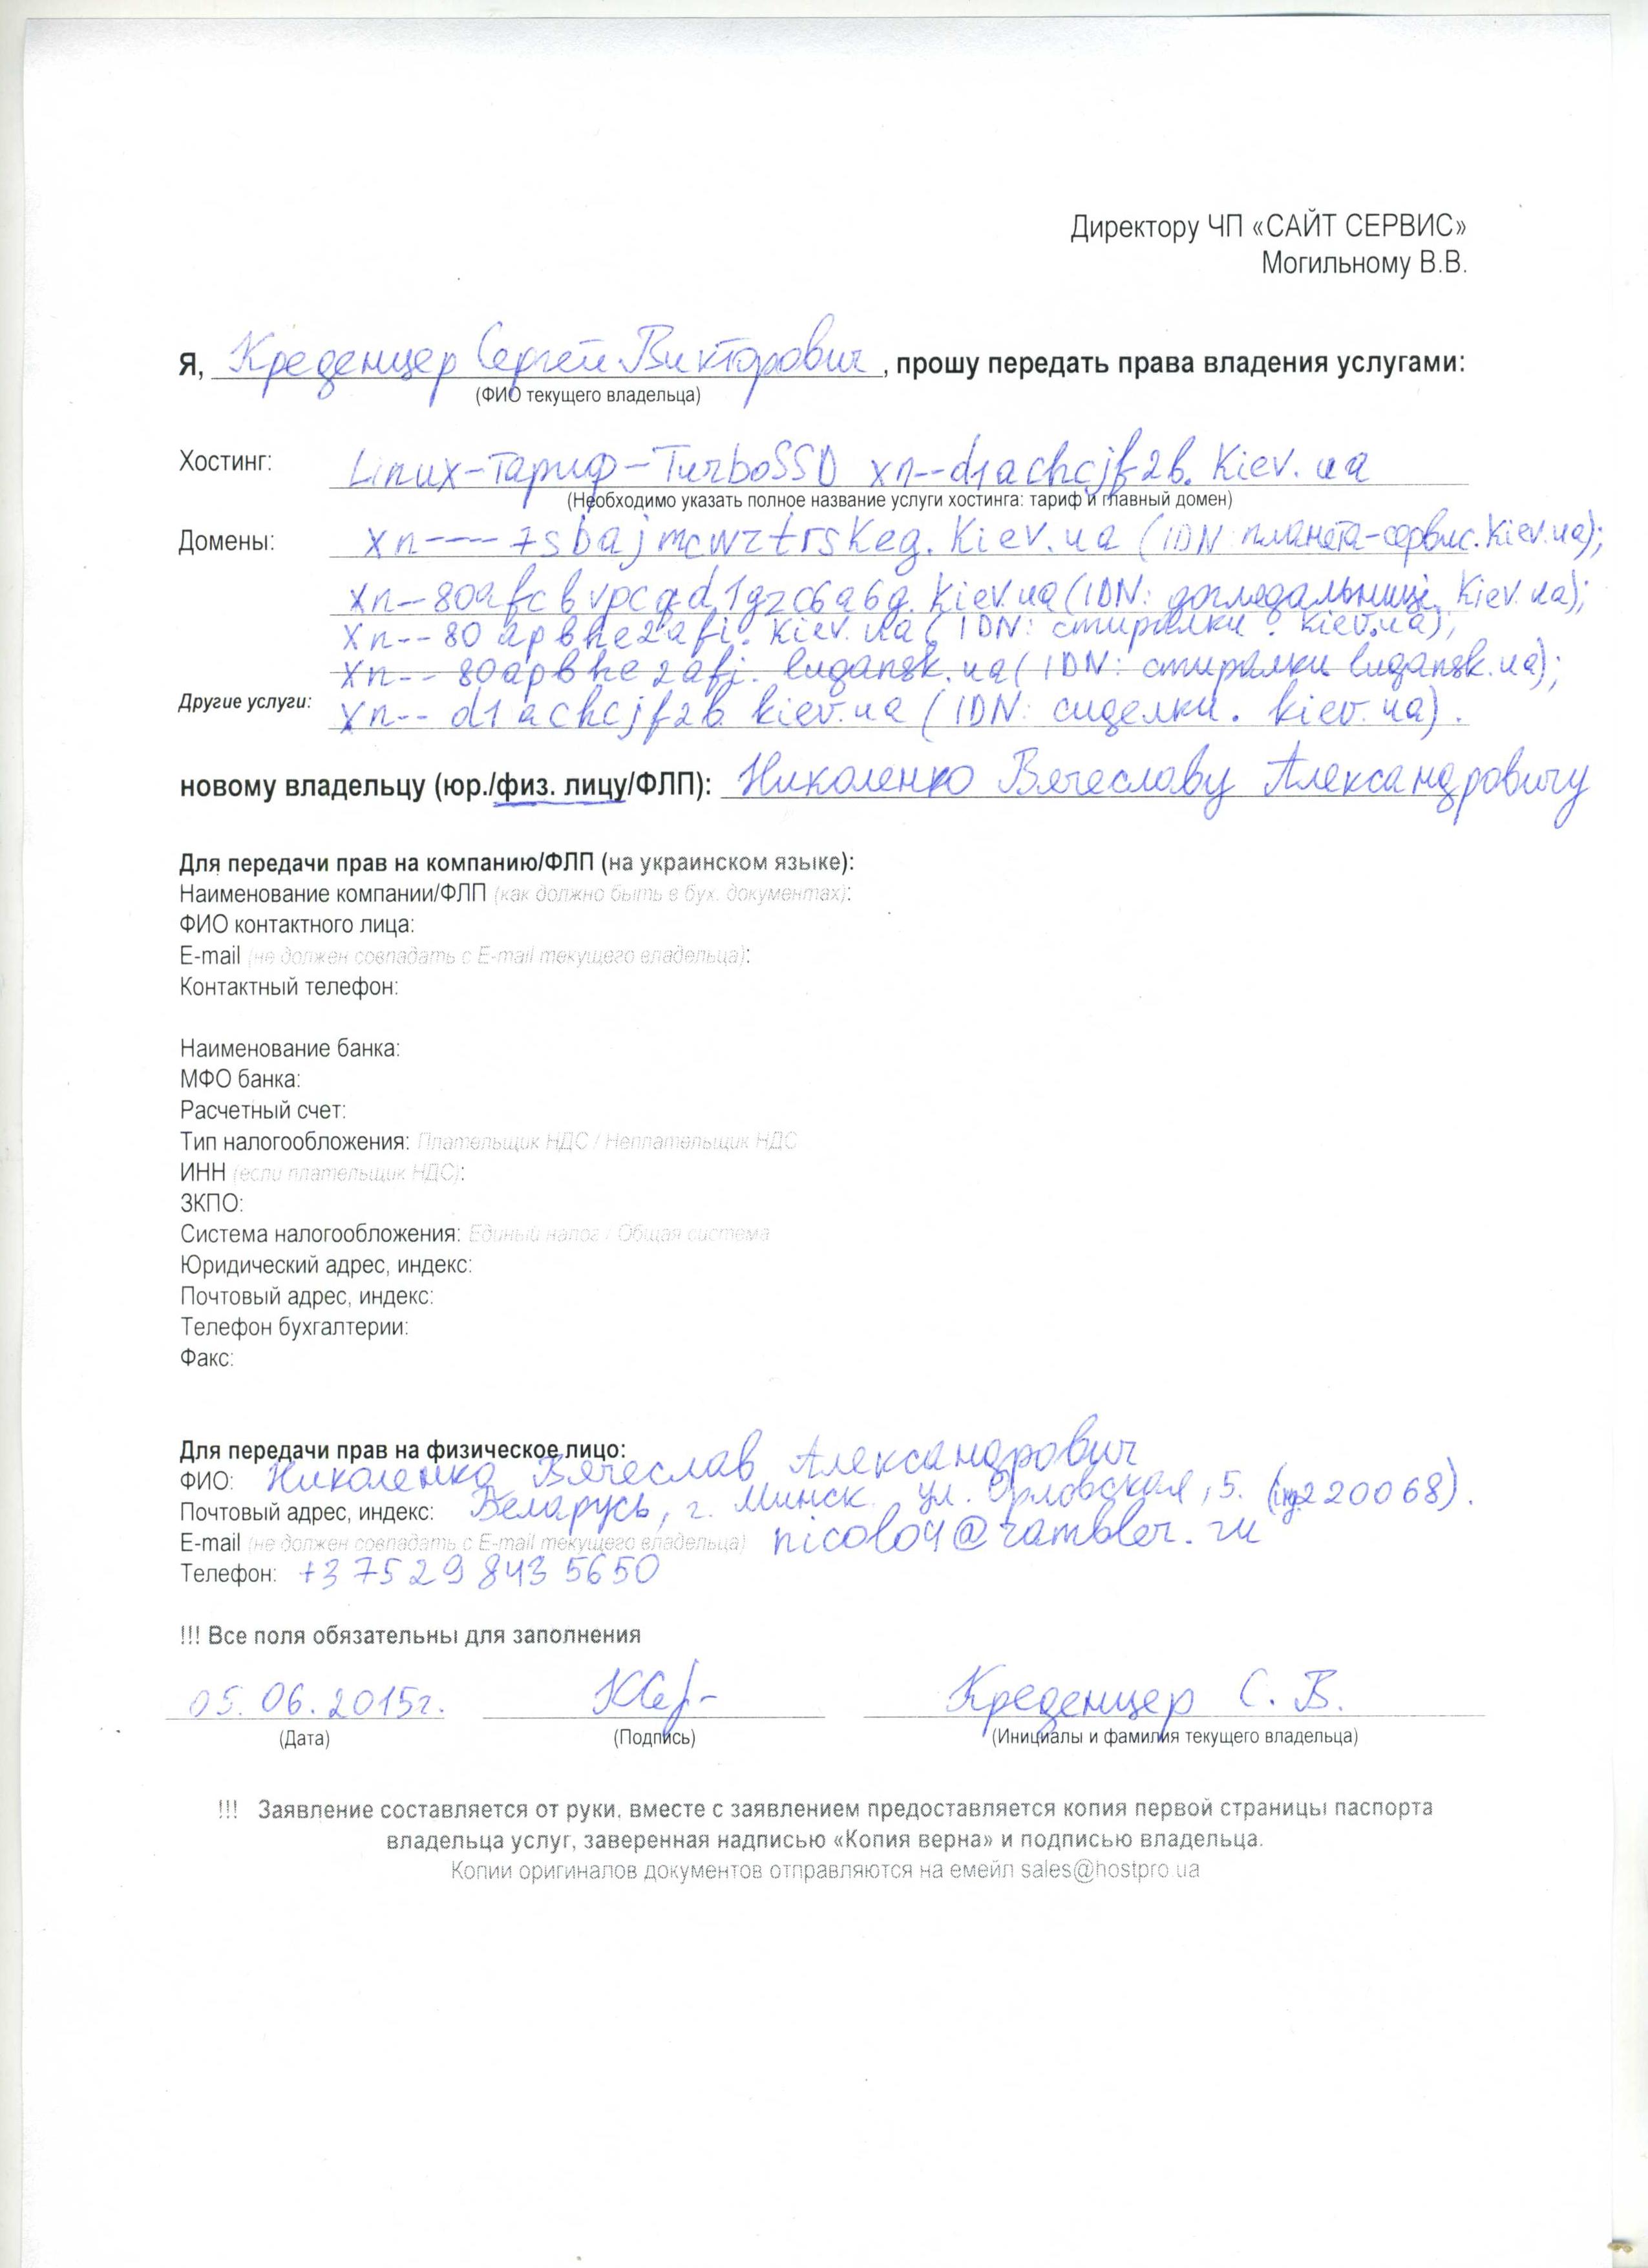 Директору ЧП «САЙТ СЕРВИС»
Могильному В.В.
Я, Креденцер Сергей Викторович, прошу передать права владения услугами:
(ФИО текущего владельца)
Хостинг: Linux-Тариф-TurboSSD xn--d1achcjf2b.kiev.ua
(Необходимо указать полное название услуги хостинга: тариф и главный домен)
Домены: xn----7sbajmcwztrskeg.kiev.ua (IDN: планета-сервис.kiev.ua);
xn--80afcbvpcgd1gzc6a6g.kiev.ua (IDN: доглядальниці.kiev.ua);
xn--80apbhe2afi.kiev.ua (IDN: стиралки.kiev.ua);
xn--80apbhe2afi.lugansk.ua (IDN: стиралки lugansk.ua);
Другие услуги: xn--d1achcjf2b kiev.ua (IDN: сиделки.kiev.ua).
новому владельцу (юр./физ. лицу/ФЛП): Николенко Вячеславу Александровичу
Для передачи прав на компанию/ФЛП (на украинском языке):
Наименование компании/ФЛП (как должно быть в бух. документах):
ФИО контактного лица:
E-mail (не должен совпадать с E-mail текущего владельца):
Контактный телефон:
Наименование банка:
МФО банка:
Расчетный счет:
Тип налогообложения: Плательщик НДС / Неплательщик НДС
ИНН (если плательщик НДС):
ЗКПО:
Система налогообложения: Единый налог / Общая система
Юридический адрес, индекс:
Почтовый адрес, индекс:
Телефон бухгалтерии:
Факс:
Для передачи прав на физическое лицо:
ФИО: Николенко Вячеслав Александрович
Почтовый адрес, индекс: Беларусь, г. Минск ул. Орловская, 5. (инд.220068).
E-mail (не должен совпадать с E-mail текущего владельца) nicolo4@rambler.ru
Телефон: +375 29 843 5650
!!! Все поля обязательны для заполнения
05.06.2015г. Креденцер С. В.
(Дата) (Подпись) (Инициалы и фамилия текущего владельца)
!!! Заявление составляется от руки, вместе с заявлением предоставляется копия первой страницы паспорта
владельца услуг, заверенная надписью «Копия верна» и подписью владельца.
Копии оригиналов документов отправляются на емейл sales@hostpro.ua